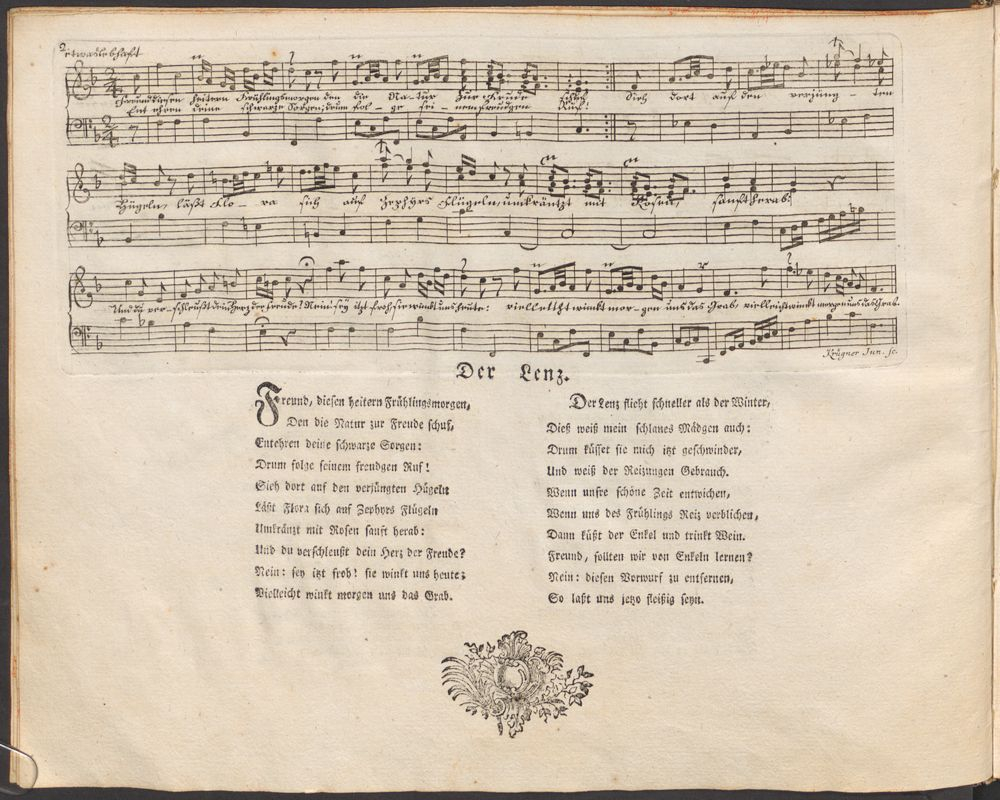 2.
etwas lebhaft
Freund diesen heitern Frühlingsmorgen den die Na- tur zur Freude schuf Sieh dort auf den verjüng- ten
Entehren deine schwarze Sorgen; drum fol- ge sei- nem freudgen Ruf!
Hügeln, läßt Flo- ra sich auf Zephyrs Flügeln, umkräntzt mit Rosen, sanft herab:
Und du ver- schleußt dein Herz der Freude? Nein: sey itzt froh, sie winkt uns heute: vielleicht winkt mor- gen uns das Grab, vielleicht winkt morgen uns das Grab.
Krügner Jun. sc.
Der Lenz.
Freund, diesen heitern Frühlingsmorgen,
Den die Natur zur Freude schuf,
Entehren deine schwarze Sorgen:
Drum folge seinem freudgen Ruf!
Sieh dort auf den verjüngten Hügeln
Läßt Flora sich auf Zephyrs Flügeln
Umkränzt mit Rosen sanft herab:
Und du verschleußt dein Herz der Freude?
Nein: sey itzt froh! sie winkt uns heute;
Vielleicht winkt morgen uns das Grab.
Der Lenz flieht schneller als der Winter,
Dieß weiß mein schlanes Mädgen auch:
Drum küsset sie mich itzt geschwinder,
Und weiß der Reizungen Gebrauch.
Wenn unsre schöne Zeit entwichen,
Wenn uns des Frühlings Reiz verblichen,
Dann küßt der Enkel und trinkt Wein.
Freund, sollten wir von Enkeln lernen?
Nein: diesen Vorwurf zu entfernen,
So laßt uns jetzo fleißig seyn.